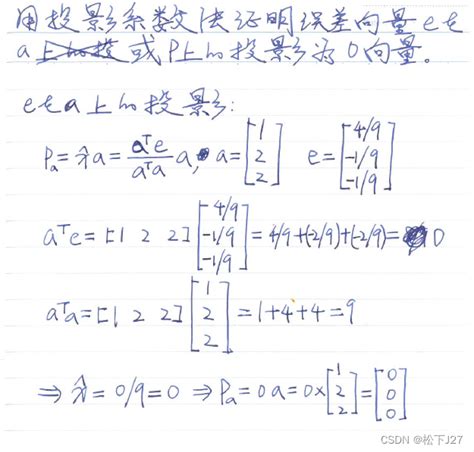 用投影系数法证明误差向量e在
a或P上的投影为0向量。
e在a上的投影:
Pₐ = x̂a = (aᵀe / aᵀa) a, a = [1 2 2] e = [4/9 -1/9 -1/9]
aᵀe = [1 2 2] [4/9 -1/9 -1/9] = 4/9 + (-2/9) + (-2/9) = 0
aᵀa = [1 2 2] [1 2 2] = 1+4+4 = 9
⇒ x̂ = 0/9 = 0 ⇒ Pₐ = 0a = 0 × [1 2 2] = [0 0 0]
CSDN @松下J27